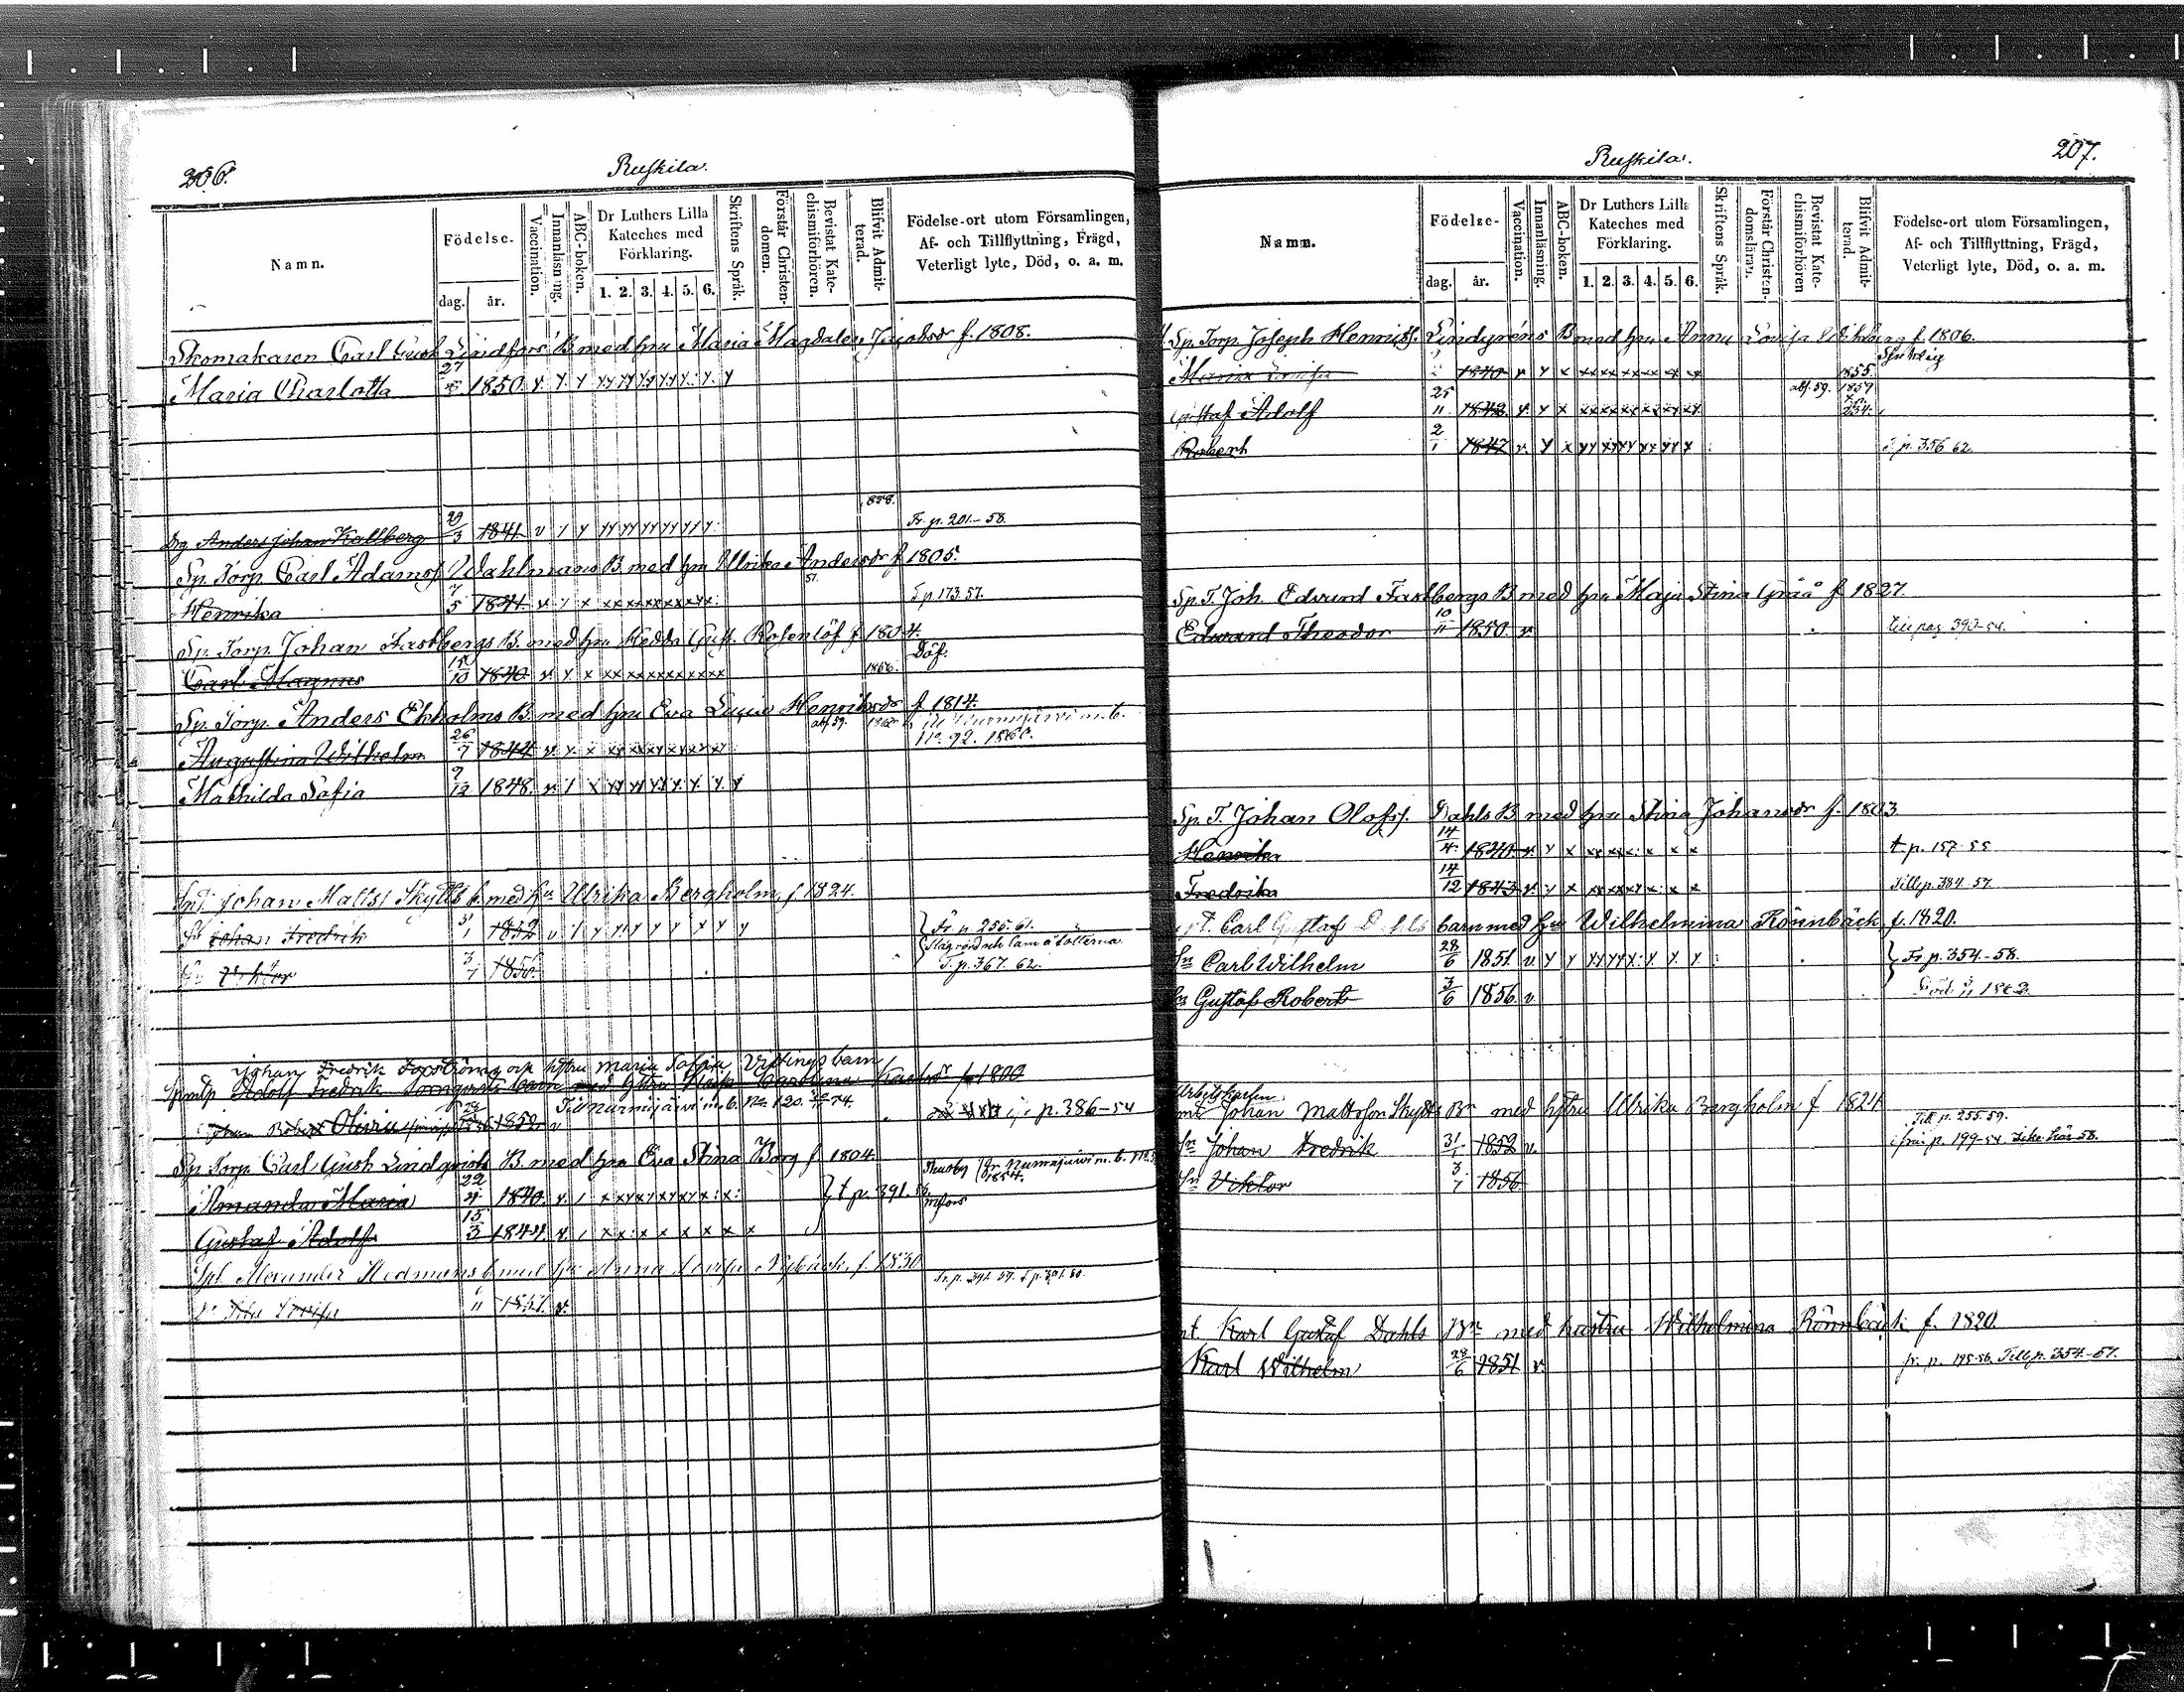 206.
Ruskila.
Namn.
Födelse-
dag. år.
Vaccination.
Innanläsning.
ABC-boken.
Dr Luthers Lilla Kateches med Förklaring.
1. 2. 3. 4. 5. 6.
Skriftens Språk.
Förstår Christendomen.
Bevistat Katechismiförhören.
Blifvit Admitterad.
Födelse-ort utom Församlingen, Af- och Tillflyttning, Frägd, Veterligt lyte, Död, o. a. m.
Skomakaren Carl Gust Lindfors B med hru Maria Magdalen Jacobsdr f. 1808.
Maria Charlotta 1850
Drg Anders Johan Kallberg 29/3 1841 Fr. p. 201-58.
Sp. Torp. Carl Adamss Wahlmans B med hru Ulrika Andersdr f 1805.
Henrika 7/5 1841 T p 173 57.
Sp. Torp. Johan Fastbergs B. med hru Hedda Gust. Rosenlöf f 1804.
Carl Magnus 15/10 1840 1856. Döf.
Sp. Torp. Anders Ekholms B. med hru Eva Lovisa Henriksdr f 1814.
Augustina Wilhelm. 26/7 1844 abs. 59. 1860 No. 92. 1860.
Mathilda Sofia 9/12 1848.
Spt. Johan Matts Skytts b. med hu Ulrika Bergholm, f 1824.
Sn Johan Fredrik 31/1 1852 Fr. p. 255. 61.
Sn Viktor 3/7 1856. T. p. 367. 62.
Johan Fredrik Forsströms och hstru Maria Sofia barn
Adolf Fredrik barn med hstru Carolina Karlsdr f 1800
Johan Robert 1852 v Till Nurmijärvi m. b. No. 120. p. 386-54
Sp. Torp. Carl Gust Lindqvists B. med hru Eva Stina Borg f 1804.
Amanda Maria 22/4 1840 t p. 391.
Gustaf Adolf 15/3 1844
Spt Alexander Hedmans b med hu Anna Lovisa Nybäck f. 1830
207.
Ruskila.
Namn.
Födelse-
dag. år.
Vaccination.
Innanläsning.
ABC-boken.
Dr Luthers Lilla Kateches med Förklaring.
1. 2. 3. 4. 5. 6.
Skriftens Språk.
Förstår Christendomsläran.
Bevistat Katechismiförhören
Blifvit Admitterad.
Födelse-ort utom Församlingen, Af- och Tillflyttning, Frägd, Veterligt lyte, Död, o. a. m.
Sp. Torp. Joseph Henrikss. Lindgréns B med hru Anna Lovisa f. 1806.
Maria Lovisa 1840 1855. Sjuklig
Gustaf Adolf 25/11 1842 abs. 59. 1859
Robert 2/1 1847 T p. 356 62.
Sp. T. Joh. Edvard Fastbergs B med hru Maja Stina Gråå f 1827.
Edward Theodor 10/11 1850 v. 393-54.
Sp. T. Johan Olofss. Dahls B med hru Stina Johansdr f. 1803.
Henrika 14/4 1840 t p. 157-55
Fredrika 14/12 1843 Till p. 384-57.
Spt. Carl Gustaf Dahls barn med hu Wilhelmina Rönnbäck, f. 1820.
Sn Carl Wilhelm 28/6 1851. Fr. p. 354-58.
Sn Gustaf Robert 3/6 1856 v.
Arbetskarlen
Johan Mattsson Skytts Bn med hstru Ulrika Bergholm f 1824
Sn Johan Fredrik 31/1 1852 v. Till p. 255. 59. från p. 199-54.
Sn Viktor 3/7 1856
Karl Gustaf Dahls Bn med hustru Wilhelmina Rönnbäck f. 1820
Karl Wilhelm 28/6 1851 v. fr. p. 195-56. Till p. 354-57.